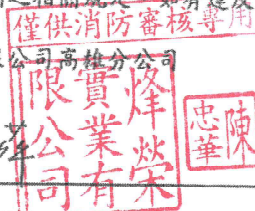 僅供消防審核專用
公司高雄分公司
烽榮
實業有
限公司
陳
忠華